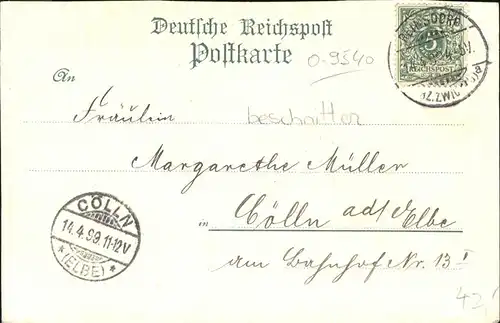 Deutsche Reichspost
Postkarte
0-9540
5
REICHSPOST
An
Fräulein
beschnitten
Margarethe Müller
in Cölln ad/ Elbe
am Bahnhof Nr. 13 I
CÖLLN
14.4.99.11-12V
*(ELBE)*
42,